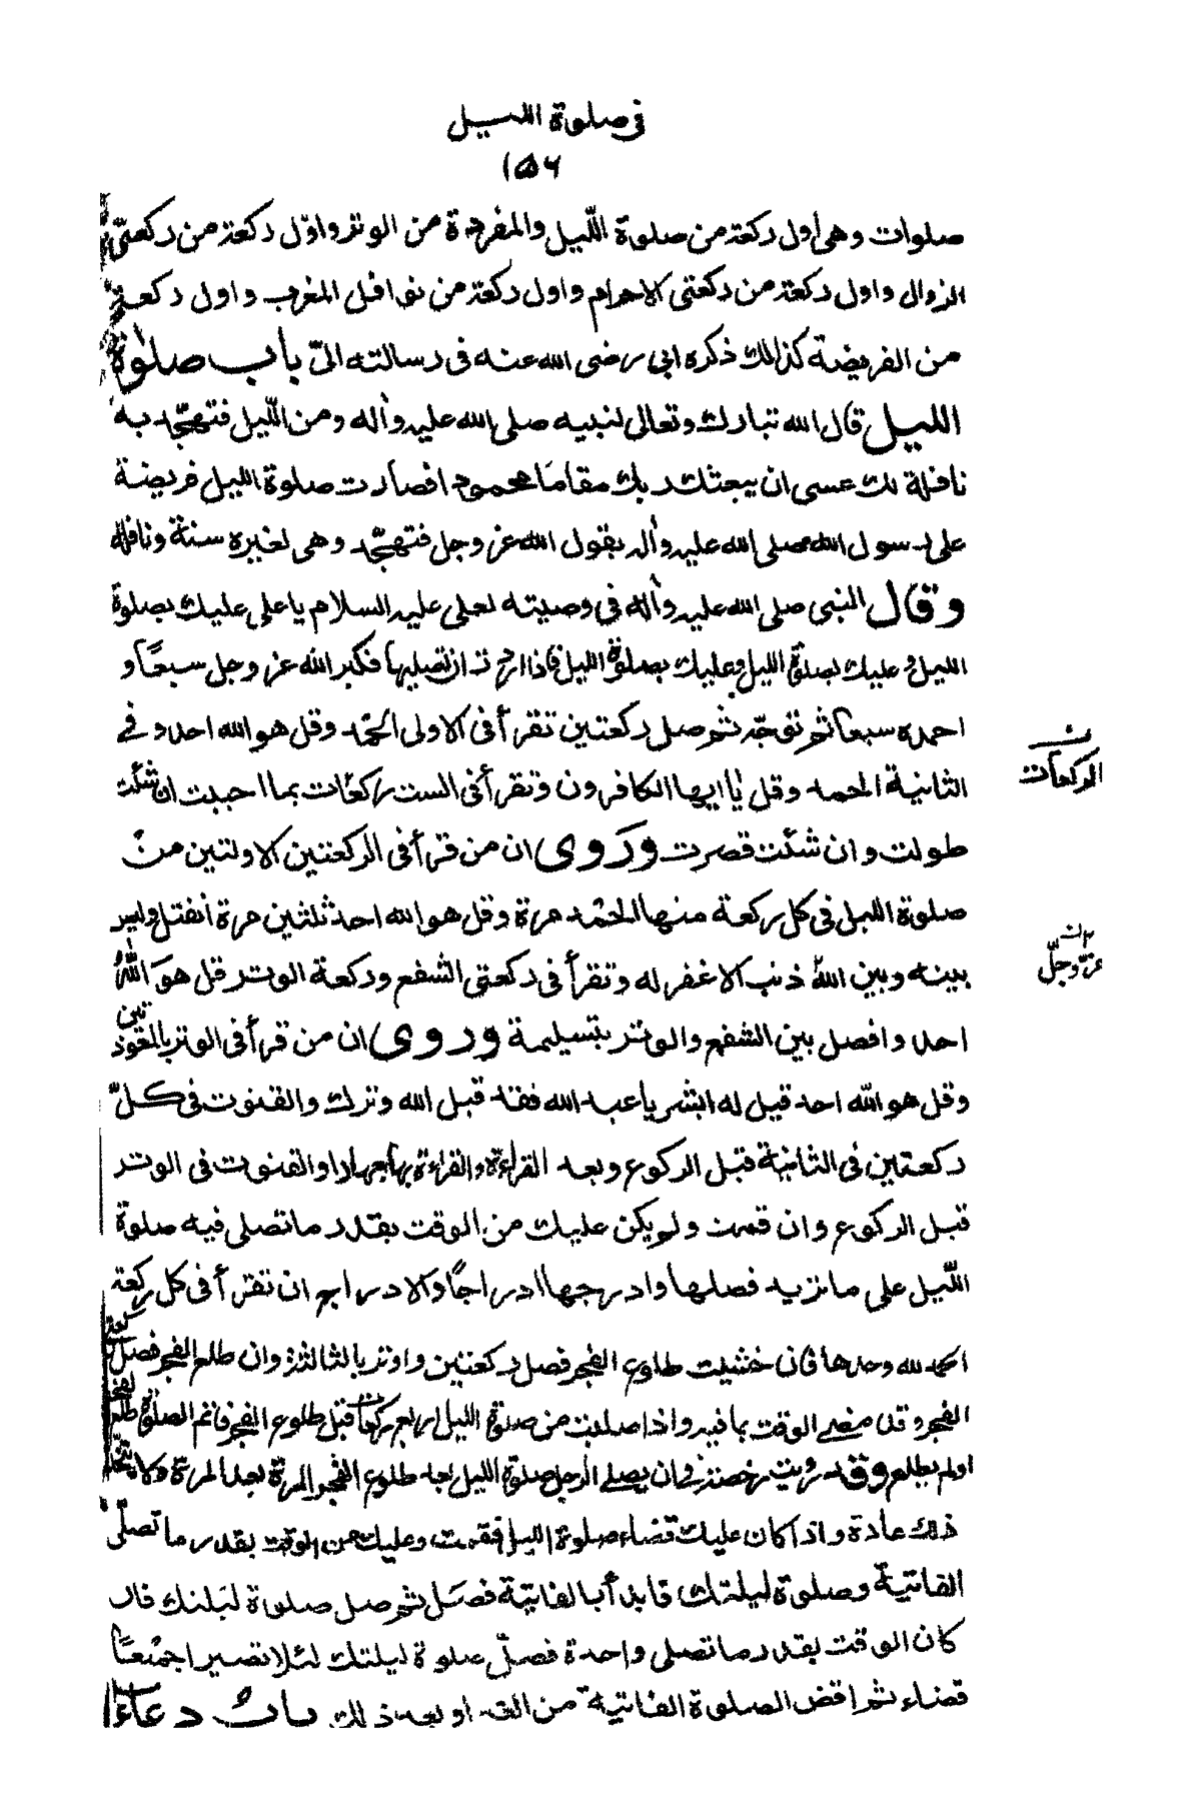 فى صلوة الليل
١٥٦
صلوات وهى أول ركعة من صلوة اللّيل والمفردة من الوتر واوّل ركعة من ركعتى
الزوال واول ركعة من ركعتى الاحرام واول ركعة من نوافل المغرب واول ركعة
من الفريضة كذلك ذكره ابى رضى الله عنه فى رسالته الىّ باب صلوة
الليل قال الله تبارك وتعالى لنبيه صلى الله عليه وآله ومن اللّيل فتهجّد به
نافلة لك عسى ان يبعثك ربك مقاما محمودا فصارت صلوة الليل فريضة
على رسول الله صلى الله عليه وآله بقول الله عز وجل فتهجّد وهى لغيره سنة ونافلة
وقال النبى صلى الله عليه وآله فى وصيته لعلى عليه السلام يا على عليك بصلوة
الليل وعليك بصلوة الليل وعليك بصلوة الليل فاذا اردت ان تصليها فكبر الله عز وجل سبعًا و
احمده سبعا ثم توجّه ثم صل ركعتين تقرأ فى الاولى الحمد وقل هو الله احد وفى
الثانية الحمد وقل يا ايها الكافرون وتقرأ فى الست ركعات بما احببت ان شئت
الركعات
طولت وان شئت قصرت وروى ان من قرأ فى الركعتين الاولتين من
صلوة الليل فى كل ركعة منها الحمد مرة وقل هو الله احد ثلثين مرة انفتل وليس
بينه وبين الله ذنب الا غفر له وتقرأ فى ركعتى الشفع وركعة الوتر قل هو الله
عزّ وجلّ
احد وافصل بين الشفع والوتر بتسليمة وروى ان من قرأ فى الوتر بالمعوذتين
وقل هو الله احد قيل له ابشر يا عبد الله فقد قبل الله وترك والقنوت فى كلّ
ركعتين فى الثانية قبل الركوع وبعد القراءة والقراءة بها جهارا والقنوت فى الوتر
قبل الركوع وان قمت ولم يكن عليك من الوقت بقدر ما تصلى فيه صلوة
اللّيل على ما تريد فصلها وادرجها ادراجًا والادراج ان تقرأ فى كل ركعة
الحمد لله وحدها فان خشيت طلوع الفجر فصل ركعتين واوتر بالثالثة وان طلع الفجر فصل ركعتى
الفجر وقد مضى الوقت بما فيه واذا صليت من صلوة الليل اربع ركعات قبل طلوع الفجر فاتم الصلوة طلع الفجر
او لم يطلع وقد رويت رخصة فى ان يصلى الرجل صلوة الليل بعد طلوع الفجر المرة بعد المرة ولا يتخذ
ذلك عادة واذا كان عليك قضاء صلوة الليل فقمت وعليك من الوقت بقدر ما تصلّى
الفائتة وصلوة ليلتك فابدأ بالفائتة فصل ثم صل صلوة ليلتك فان
كان الوقت بقدر ما تصلى واحدة فصلّ صلوة ليلتك لئلا تصير اجمعًا
قضاء ثم اقض الصلوة الفائتة من الغد او بعد ذلك باب دعاء